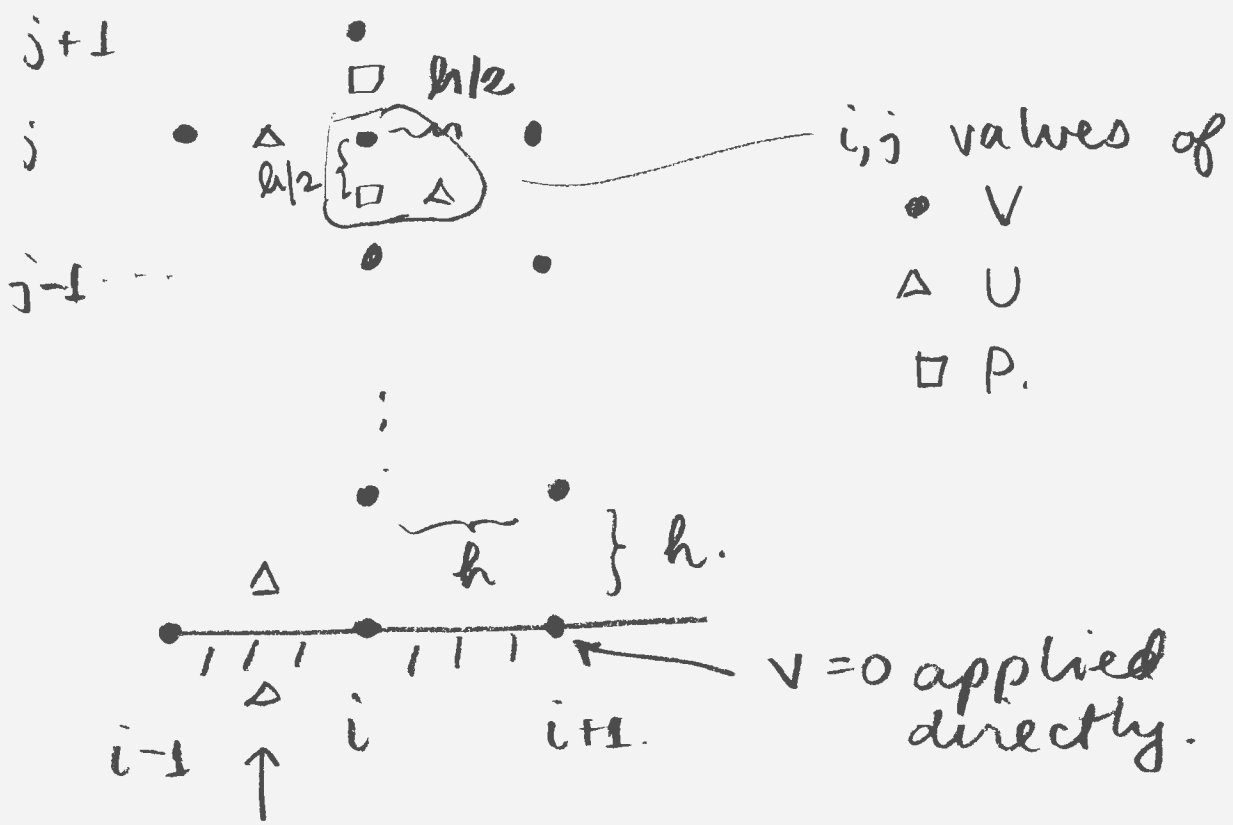 j+1
h/2
j
h/2
i,j values of
• V
△ U
□ P.
j-1 ...
h
h.
V=0 applied
directly.
i-1
i
i+1.